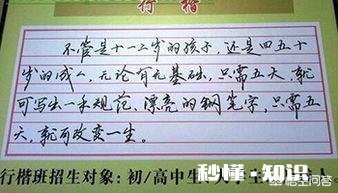 行楷
不管是十一二岁的孩子，还是四五十
岁的成人，无论有无基础，只需五天，就
可写出一手规范、漂亮的钢笔字，只需五
天，就可改变一生。
行楷班招生对象：初/高中生、大
秒懂·知识
悟空问答